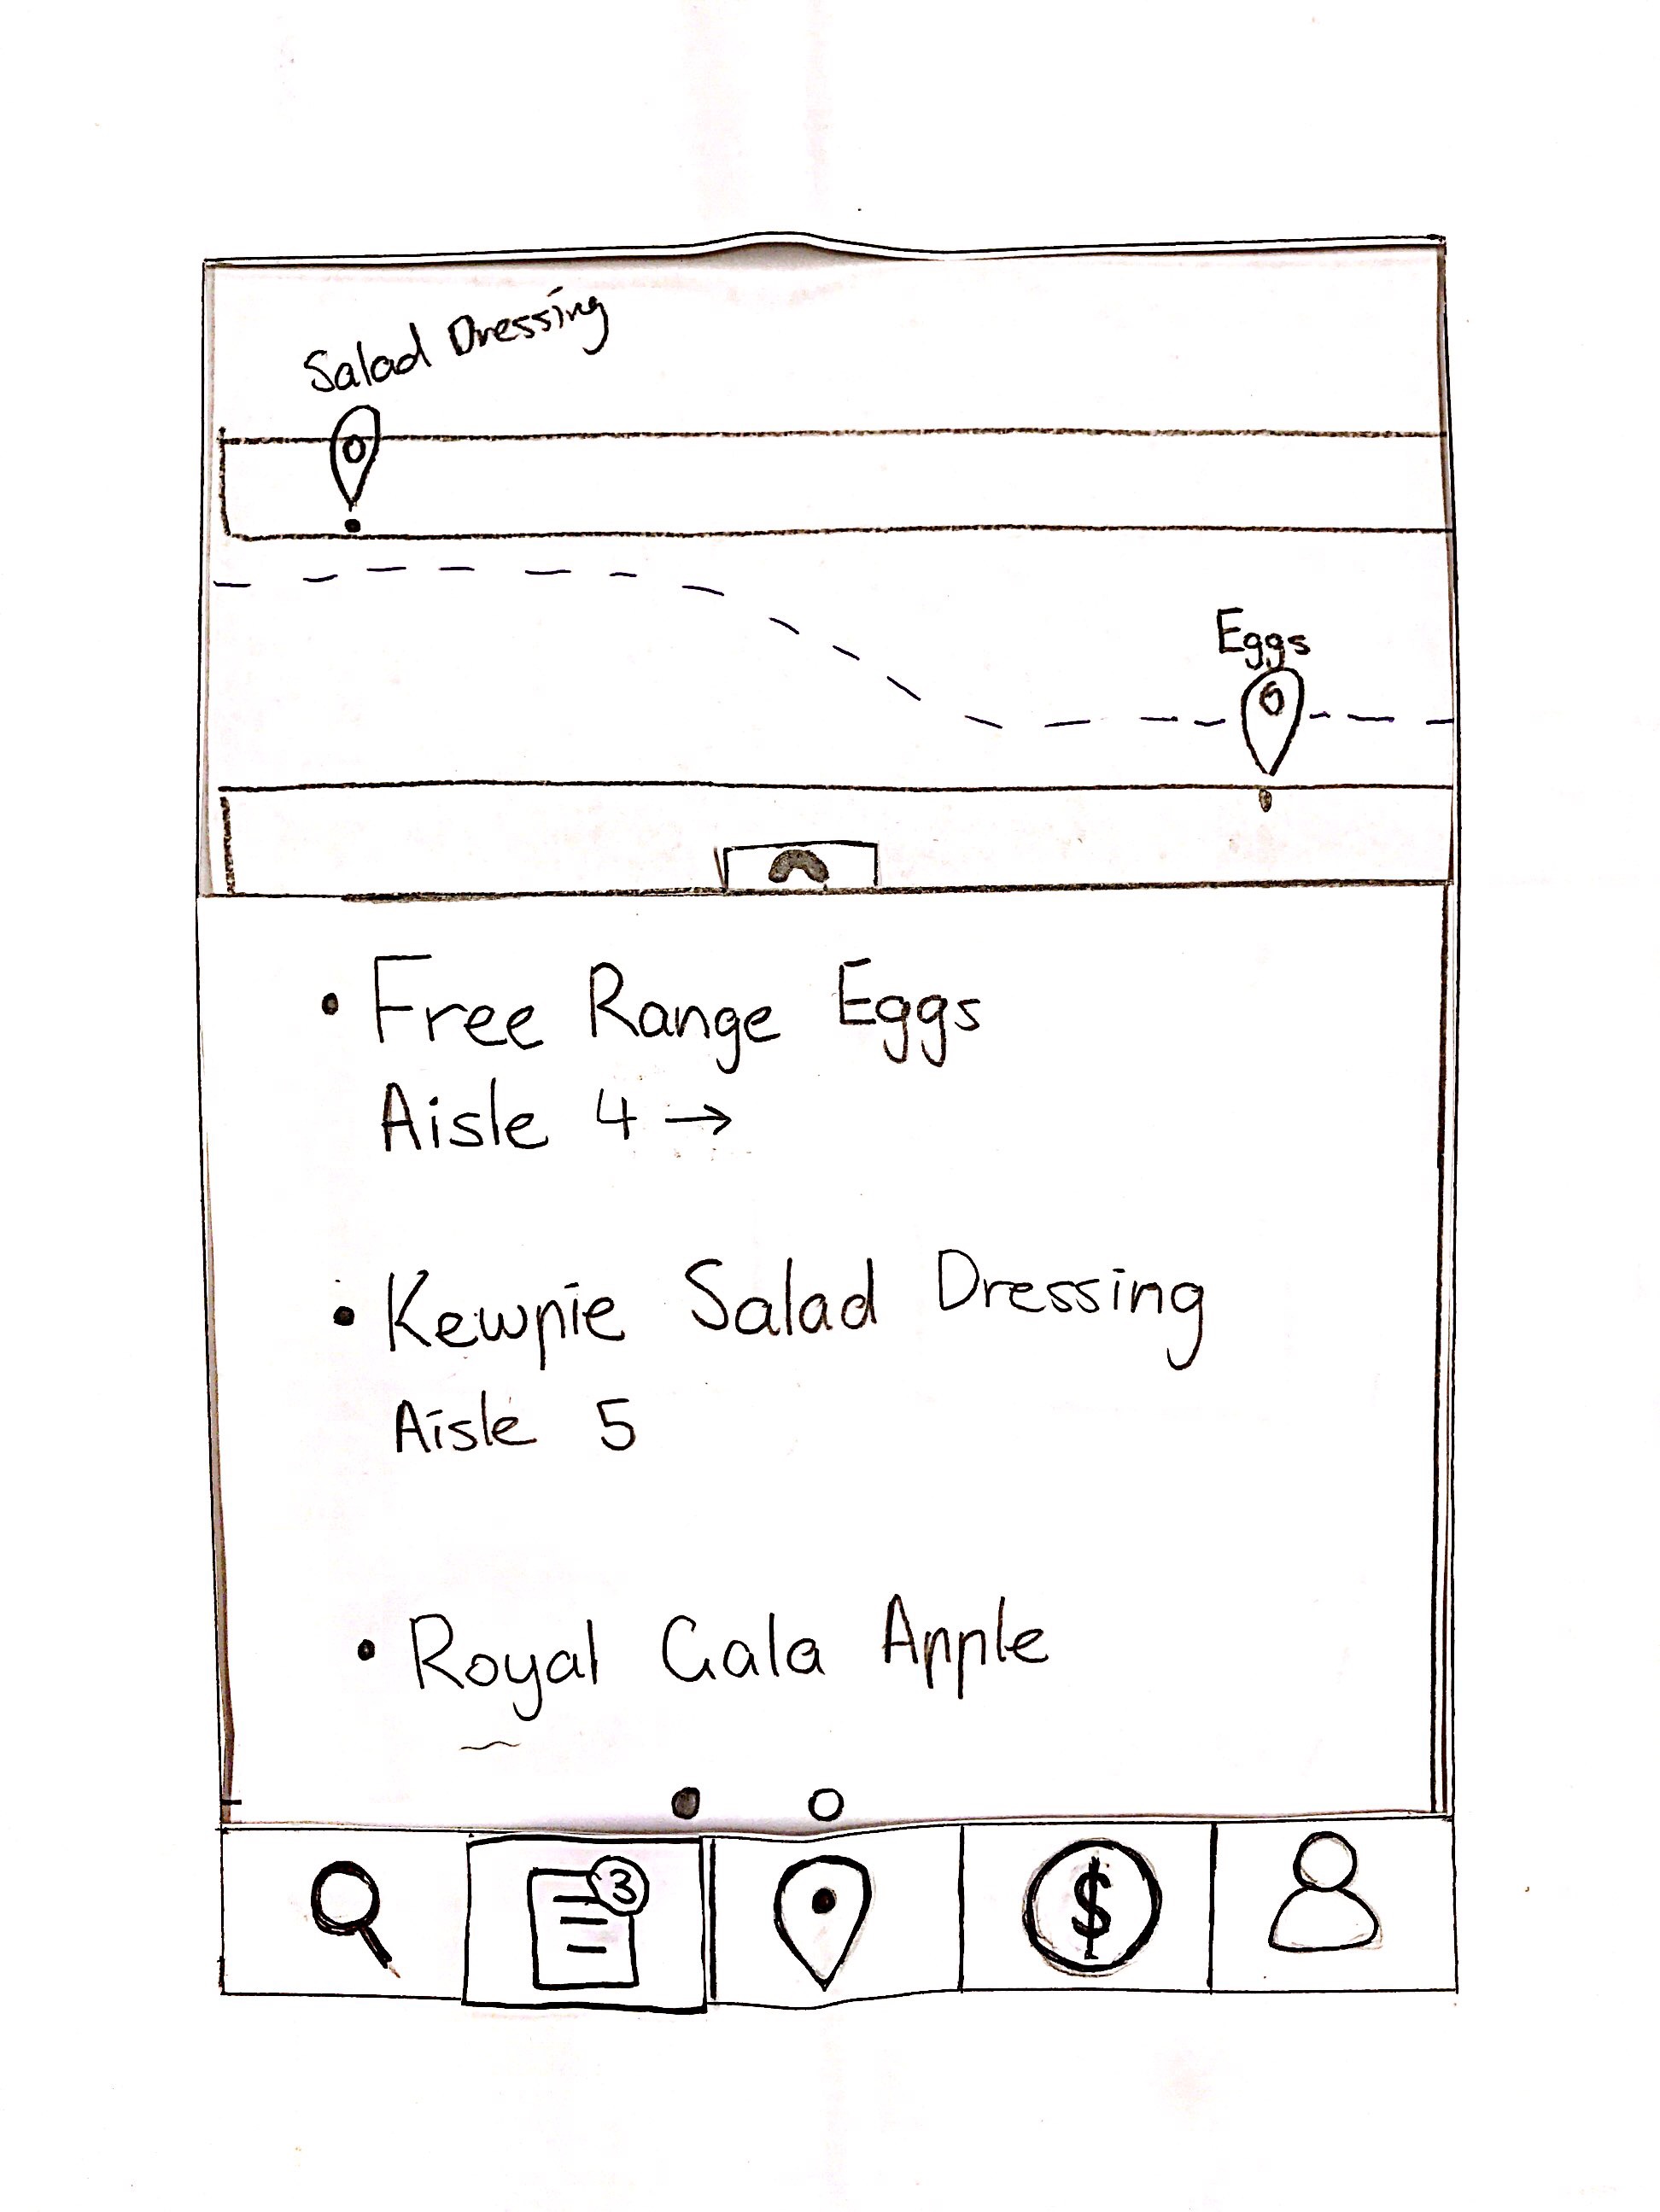 Salad Dressing
Eggs
• Free Range Eggs
Aisle 4 →
• Kewpie Salad Dressing
Aisle 5
• Royal Gala Apple
3
$